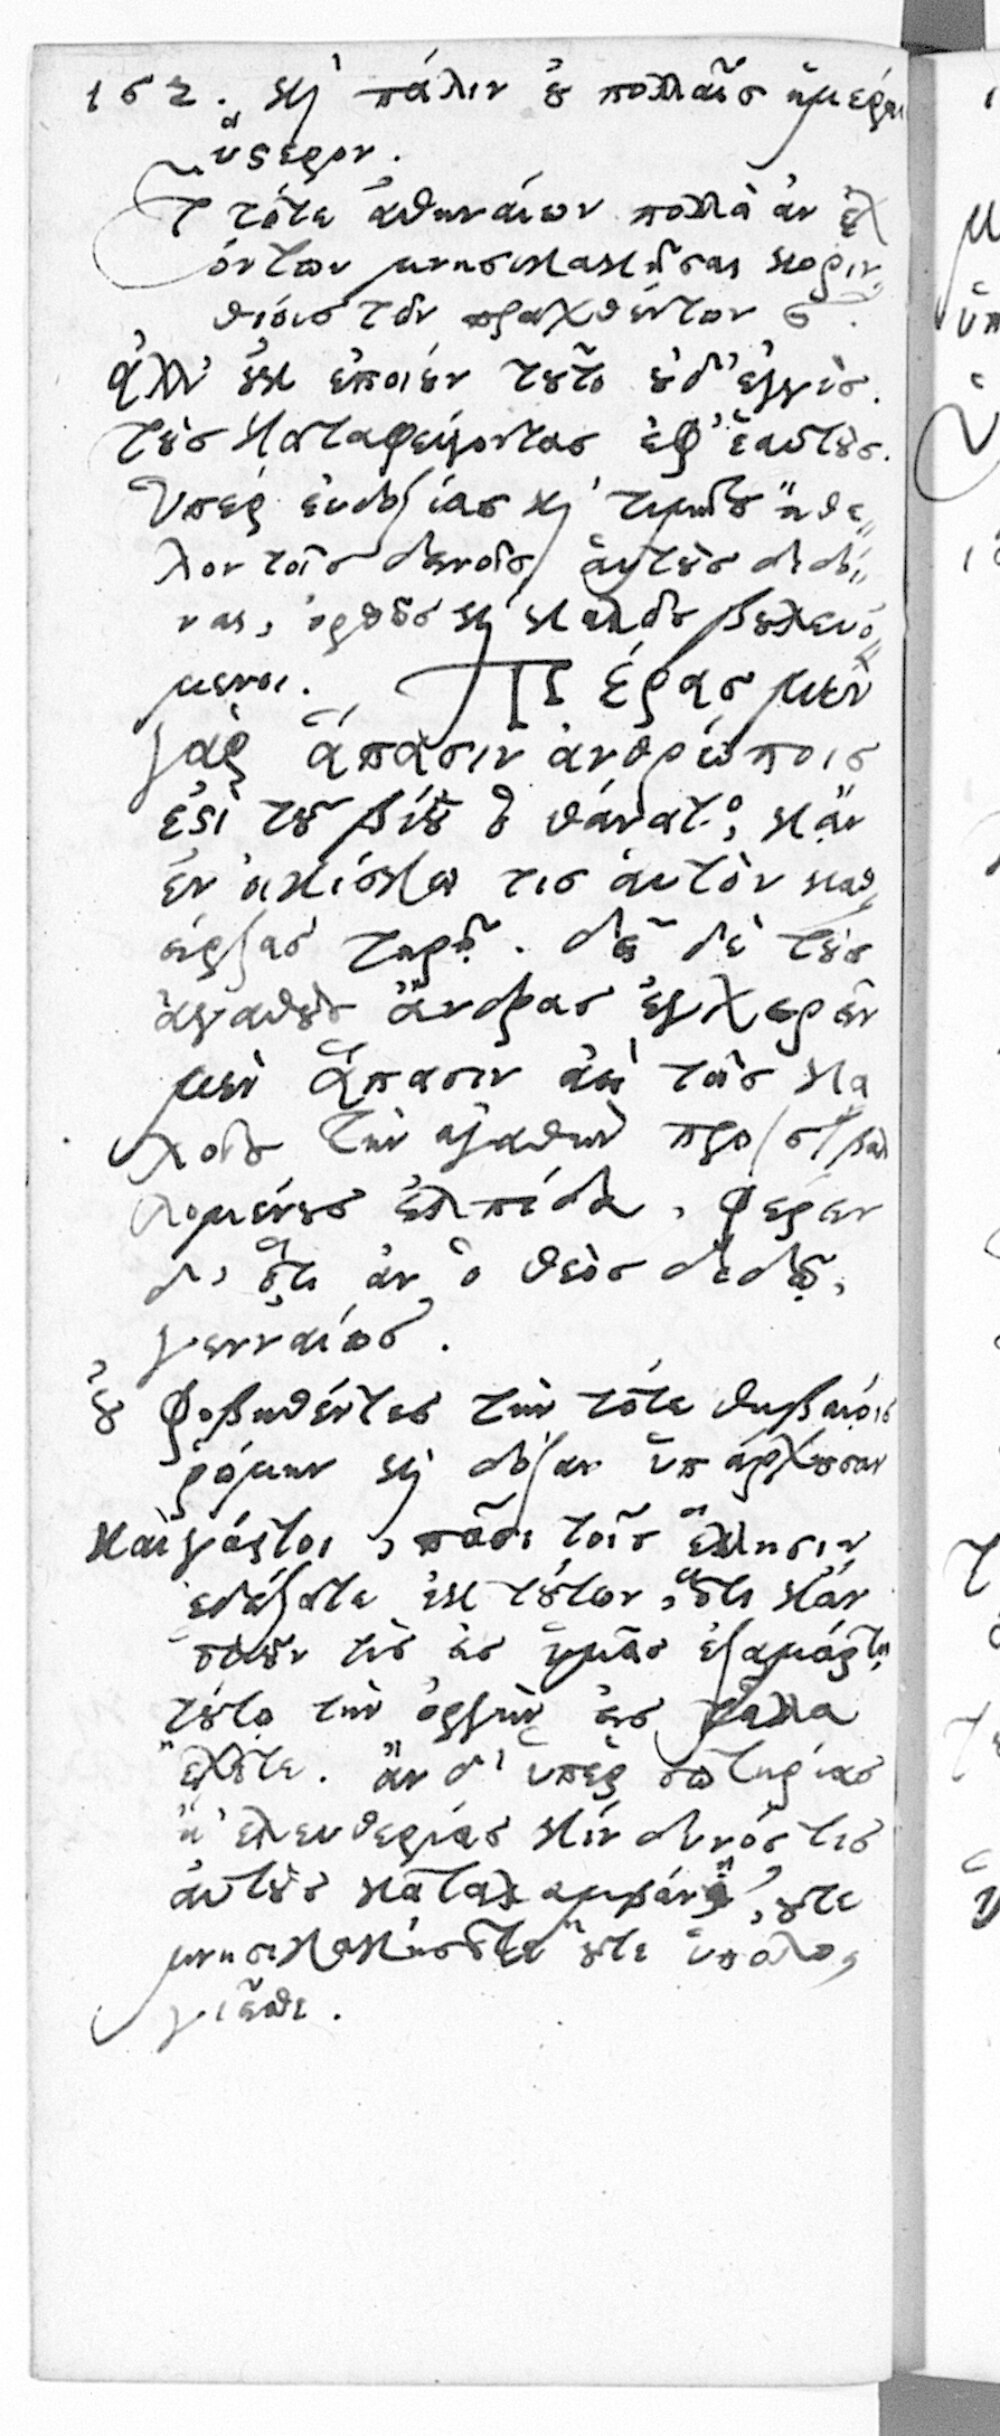 152. καὶ πάλιν οὐ πολλαῖς ἡμέραις
ὕστερον.
τ τότε ἀθηναίων πολλὰ ἂν ἐχ
όντων μνησικακῆσαι κοριν
θίοις τῶν πραχθέντων
ἀλλ' οὐκ ἐποίουν τοῦτο οὐδ' ἐγγὺς.
τοὺς καταφεύγοντας ἐφ' ἑαυτοὺς.
Ὑπὲρ εὐδοξίας καὶ τιμῆς ἤθε
λον τοῖς δεινοῖς αὑτοὺς διδό
ναι, ὀρθῶς καὶ καλῶς βουλευό
μενοι. Πέρας μὲν
γὰρ ἅπασιν ἀνθρώποις
ἐστὶ τοῦ βίου ὁ θάνατος, κἂν
ἐν οἰκίσκω τις αὑτὸν καθ
είρξας τηρῇ. δεῖ δὲ τοὺς
ἀγαθοὺς ἄνδρας ἐγχειρεῖν
μὲν ἅπασιν ἀεὶ τοῖς κα
λοῖς τὴν ἀγαθὴν προβαλ
λομένους ἐλπίδα, φέρειν
δ' ὅτι ἂν ὁ θεὸς διδῷ,
γενναίως.
οὐ φοβηθέντες τὴν τότε θηβαίοις
ῥώμην καὶ δόξαν ὑπάρχουσαν
Καὶ γάρτοι, πᾶσι τοῖς ἕλλησιν
ἐδείξατε ἐκ τούτων, ὅτι κἂν
ὁτιοῦν τὶς εἰς ὑμᾶς ἐξαμάρτῃ,
τούτῳ τὴν ὀργὴν εἰς τἄλλα
ἔχετε. ἂν δ' ὑπὲρ σωτηρίας
ἢ ἐλευθερίας κίνδυνός τις
αὐτοὺς καταλαμβάνῃ, οὔτε
μνησικακήσετε οὔτε ὑπολο
γιεῖσθε.